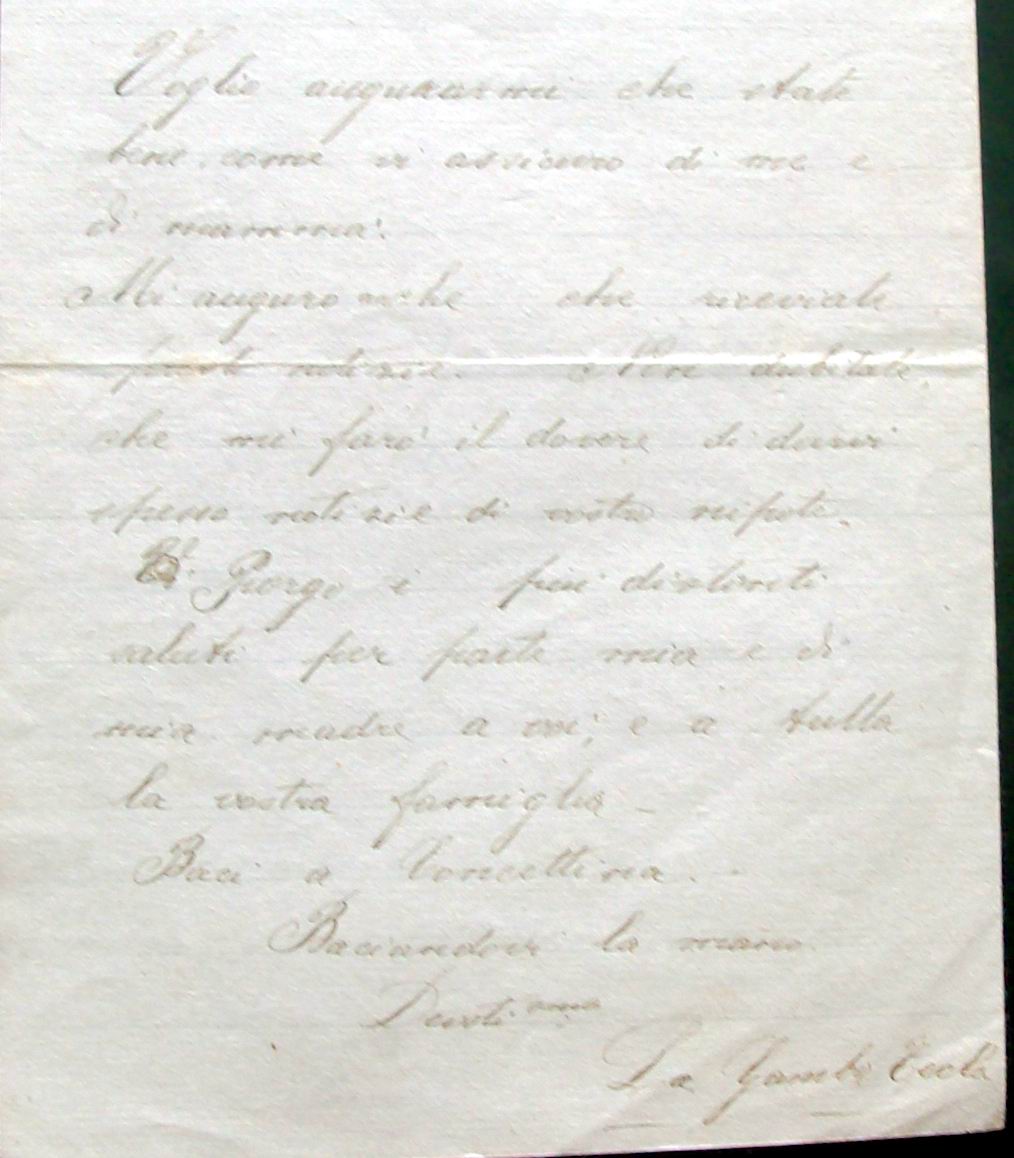 Voglio augurarmi che state
bene, come vi assicuro di me e
di mammà.
Mi auguro anche che riceviate
notizie. Non dubitate,
che mi farò il dovere di darvi
spesso notizie di vostra nipote.
Vi Porgo i più distinti
saluti per parte mia e di
mia madre a voi, e a tutta
la vostra famiglia -
Baci a Concettina. -
Baciandovi la mano
Devotima
La